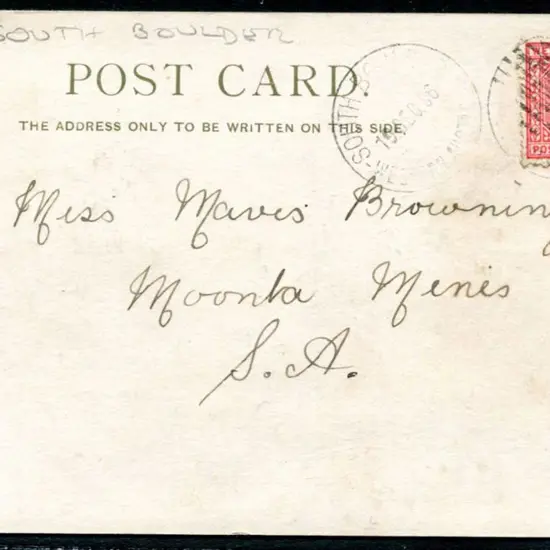 SOUTH BOULDER
POST CARD.
THE ADDRESS ONLY TO BE WRITTEN ON THIS SIDE.
SOUTH
19 DE 06
Miss Mavis Browning
Moonta Menis
S.A.